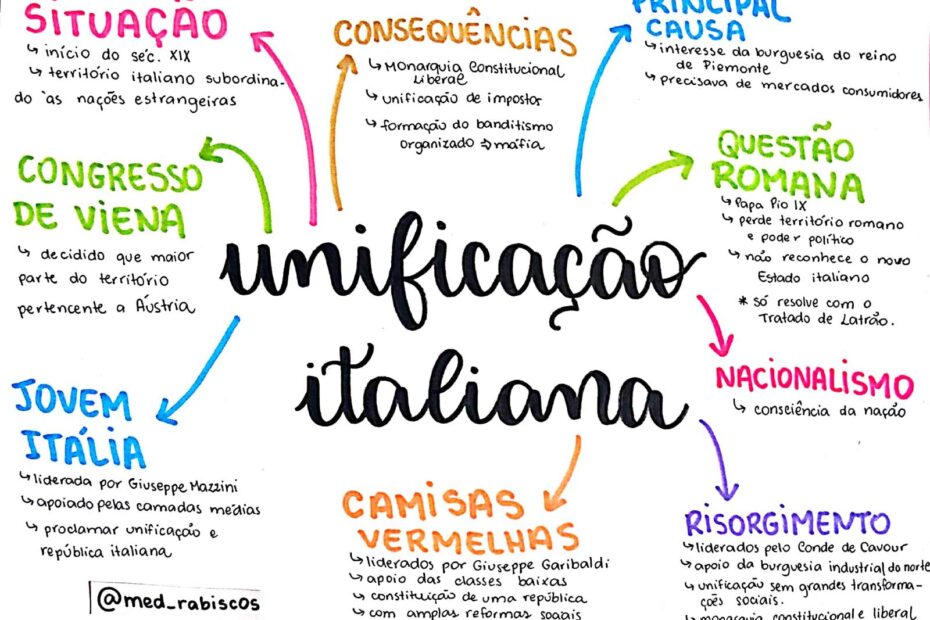 SITUAÇÃO
↳ início do séc. XIX
↳ território italiano subordina-
do às nações estrangeiras
CONSEQUÊNCIAS
↳ Monarquia Constitucional
Liberal
↳ unificação de impostor
↳ formação do banditismo
organizado ⇒ máfia
PRINCIPAL
CAUSA
↳ interesse da burguesia do reino
de Piemonte
↳ precisava de mercados consumidores
CONGRESSO
DE VIENA
↳ decidido que maior
parte do território
pertencente a Áustria
QUESTÃO
ROMANA
↳ Papa Pio IX
↳ perde território romano
e poder político
↳ não reconhece o novo
Estado italiano
* só resolve com o
Tratado de Latrão.
unificação
italiana
NACIONALISMO
↳ consciência da nação
JOVEM
ITÁLIA
↳ liderada por Giuseppe Mazzini
↳ apoiado pelas camadas médias
↳ proclamar unificação e
república italiana
CAMISAS
VERMELHAS
↳ liderados por Giuseppe Garibaldi
↳ apoio das classes baixas
↳ constituição de uma república
↳ com amplas reformas sociais
RISORGIMENTO
↳ liderados pelo Conde de Cavour
↳ apoio da burguesia industrial do norte
↳ unificação sem grandes transforma-
ções sociais.
↳ monarquia constitucional e liberal
@med_rabiscos